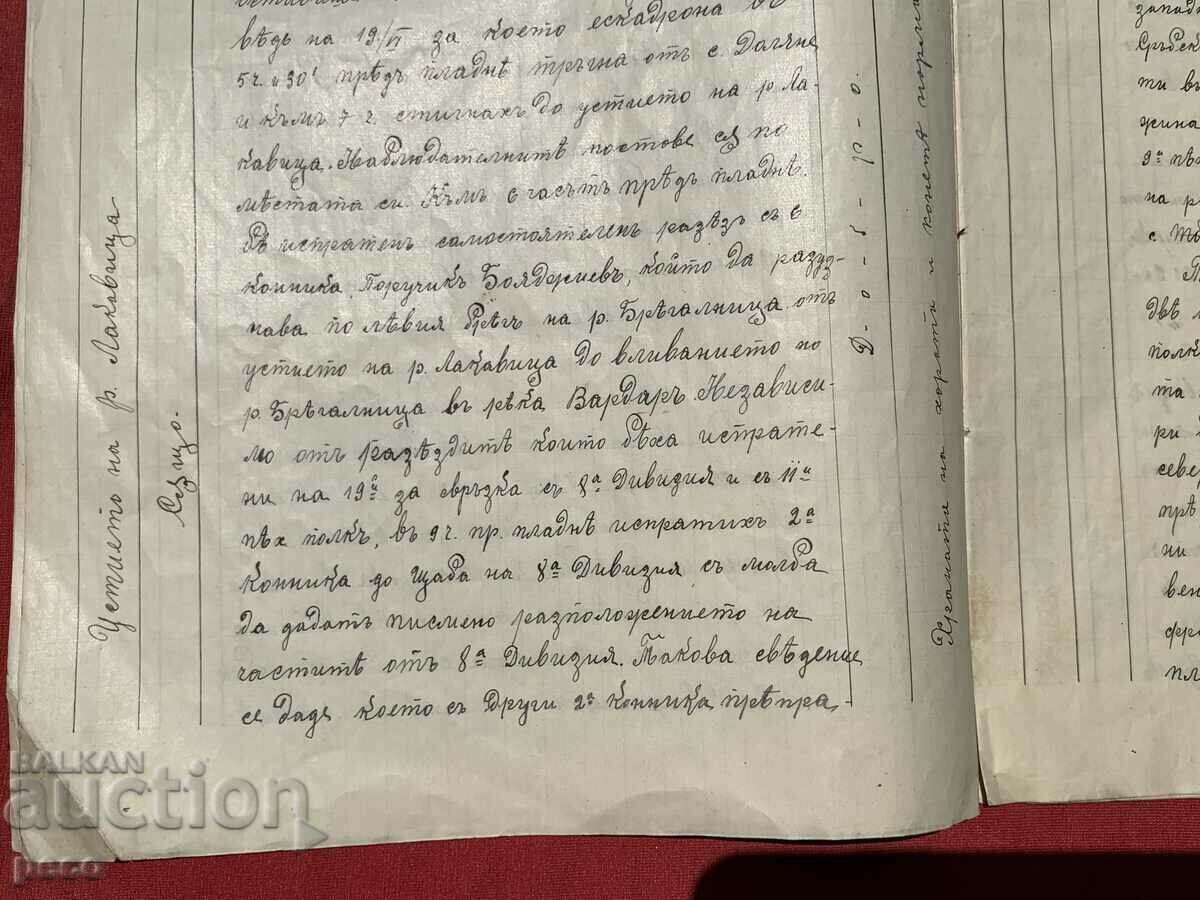 вѣдь на 19/VI за което ескадрона въ
5 ч. и 30' прѣдъ пладнѣ тръгна отъ с. Доляне
и къмъ 7 ч. стигнахъ до устието на р. Ла-
кавица. Наблюдателнитѣ постове сѫ по
мѣстата си. Къмъ 6 часътъ прѣдъ пладнѣ
бѣ испратенъ самостоятеленъ разѣздъ съ 6
конника, Поручикъ Бояджиевъ, който да разуз-
нава по лѣвия брѣгъ на р. Брѣгалница отъ
устието на р. Лакавица до вливанието по
р. Брѣгалница въ рѣка Вардаръ Независи-
мо отъ разѣздитѣ които бѣха испрате-
ни на 19й за свръзка съ 8а Дивизия и съ 11и
пѣх полкъ, въ 9 ч. пр. пладнѣ испратихъ 2а
конника до щаба на 8а Дивизия съ молба
да дадатъ писмено разположението на
частитѣ отъ 8а Дивизия. Такова сведение
се даде което съ други 2а конника прѣпра-
Устието на р. Лаковица
Сѫщо.
Д-о-б-р-о.
Храната на хората и конетѣ
запад
Сръбск
ти въ
жина
9а пѣх
на р
двѣ
полк
та
ри
север
прѣ
ни
вен
фро
пл
BALKAN
auction
peco